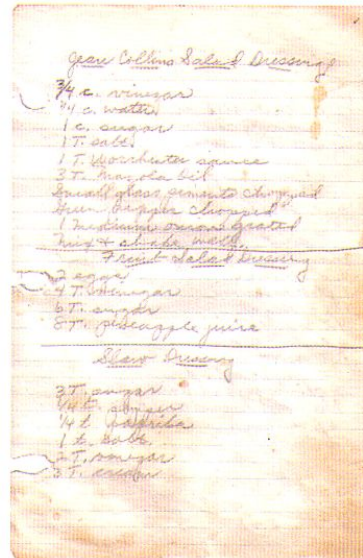 Jean Collins Salad Dressing
3/4 c. vinegar
1/4 c. water
1 c. sugar
1 T. salt
1 T. Worchester sauce
3 T. Mazola oil
Small glass pimento chopped
Green pepper chopped
1 medium onion grated
mix & shake well.
Fruit Salad Dressing
2 eggs
4 T. vinegar
6 T. sugar
8 T. pineapple juice
Slaw Dressing
3 T. sugar
1/4 t. pepper
1/4 t paprika
1 t. salt
2 T. vinegar
3 T. cream